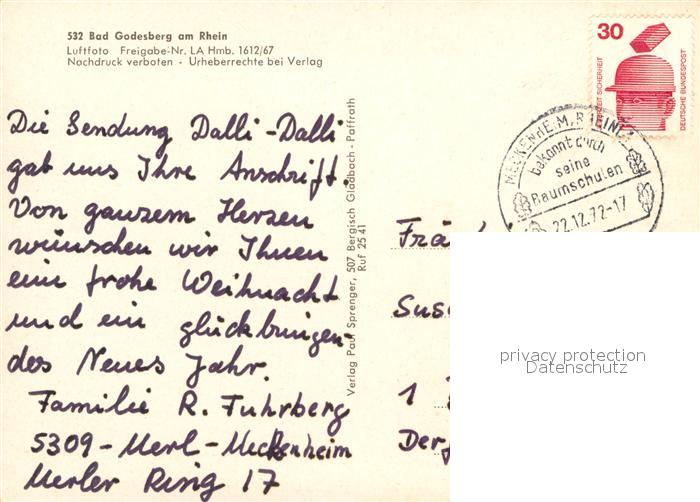 532 Bad Godesberg am Rhein
Luftfoto Freigabe-Nr. LA Hmb. 1612/67
Nachdruck verboten - Urheberrechte bei Verlag
30
DEUTSCHE BUNDESPOST
MECKENHEIM, RHEINL
bekannt durch
seine
Baumschulen
22.12.72-17
Die Sendung Dalli-Dalli
gab uns Ihre Anschrift.
Von ganzem Herzen
wünschen wir Ihnen
eine frohe Weihnacht
und ein glückbringen-
des Neues Jahr.
Familie R. Fuhrberg
5309 - Merl - Meckenheim
Merler Ring 17
Verlag Paul Sprenger, 507 Bergisch Gladbach - Paffrath
Ruf 25 41
Frä
Sus
1
Der
privacy protection
Datenschutz